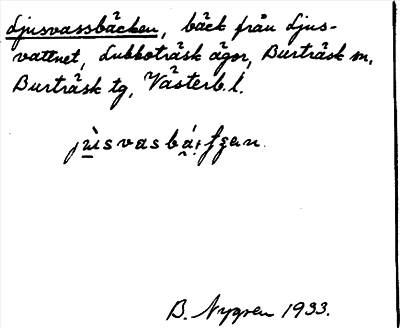 Ljusvassbäcken, bäck från Ljus-
vattnet, Lubboträsk ägor, Burträsk sn,
Burträsk tg, Västerb.l.
B. Nygren 1933.